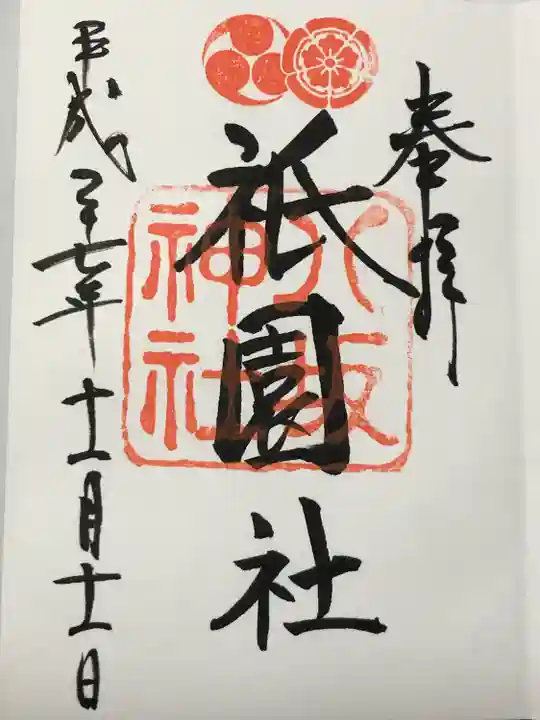 奉拝
祇園社
八坂
神社
平成二十七年十二月十二日